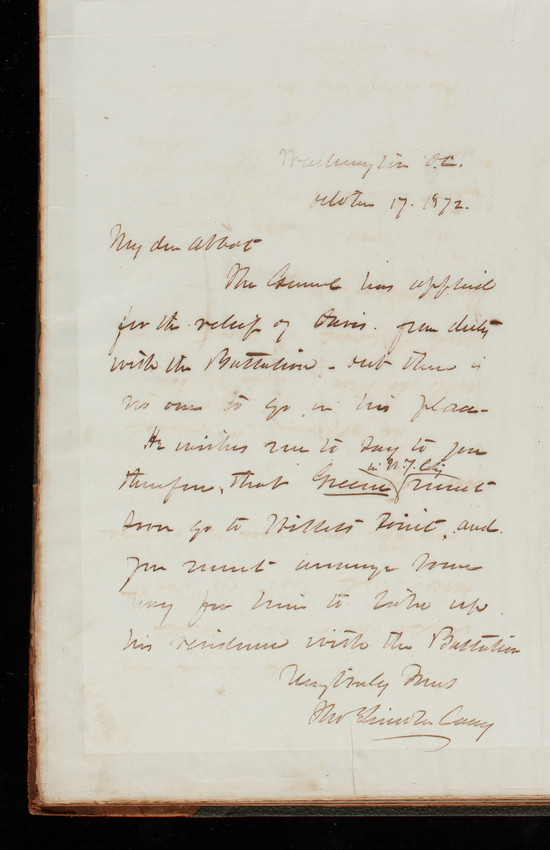 Washington D.C.
October 17. 1872.
My dear Abbot
The General has applied
for the relief of Davis. from duty
with the Battalion - but there is
no one to go in his place -
He wishes me to say to you
in N.Y. City
therefore, that Greene must
soon go to Willets Point, and
you must arrange some
way for him to take up
his residence with the Battalion
Very truly Yours
Tho Lincoln Casey